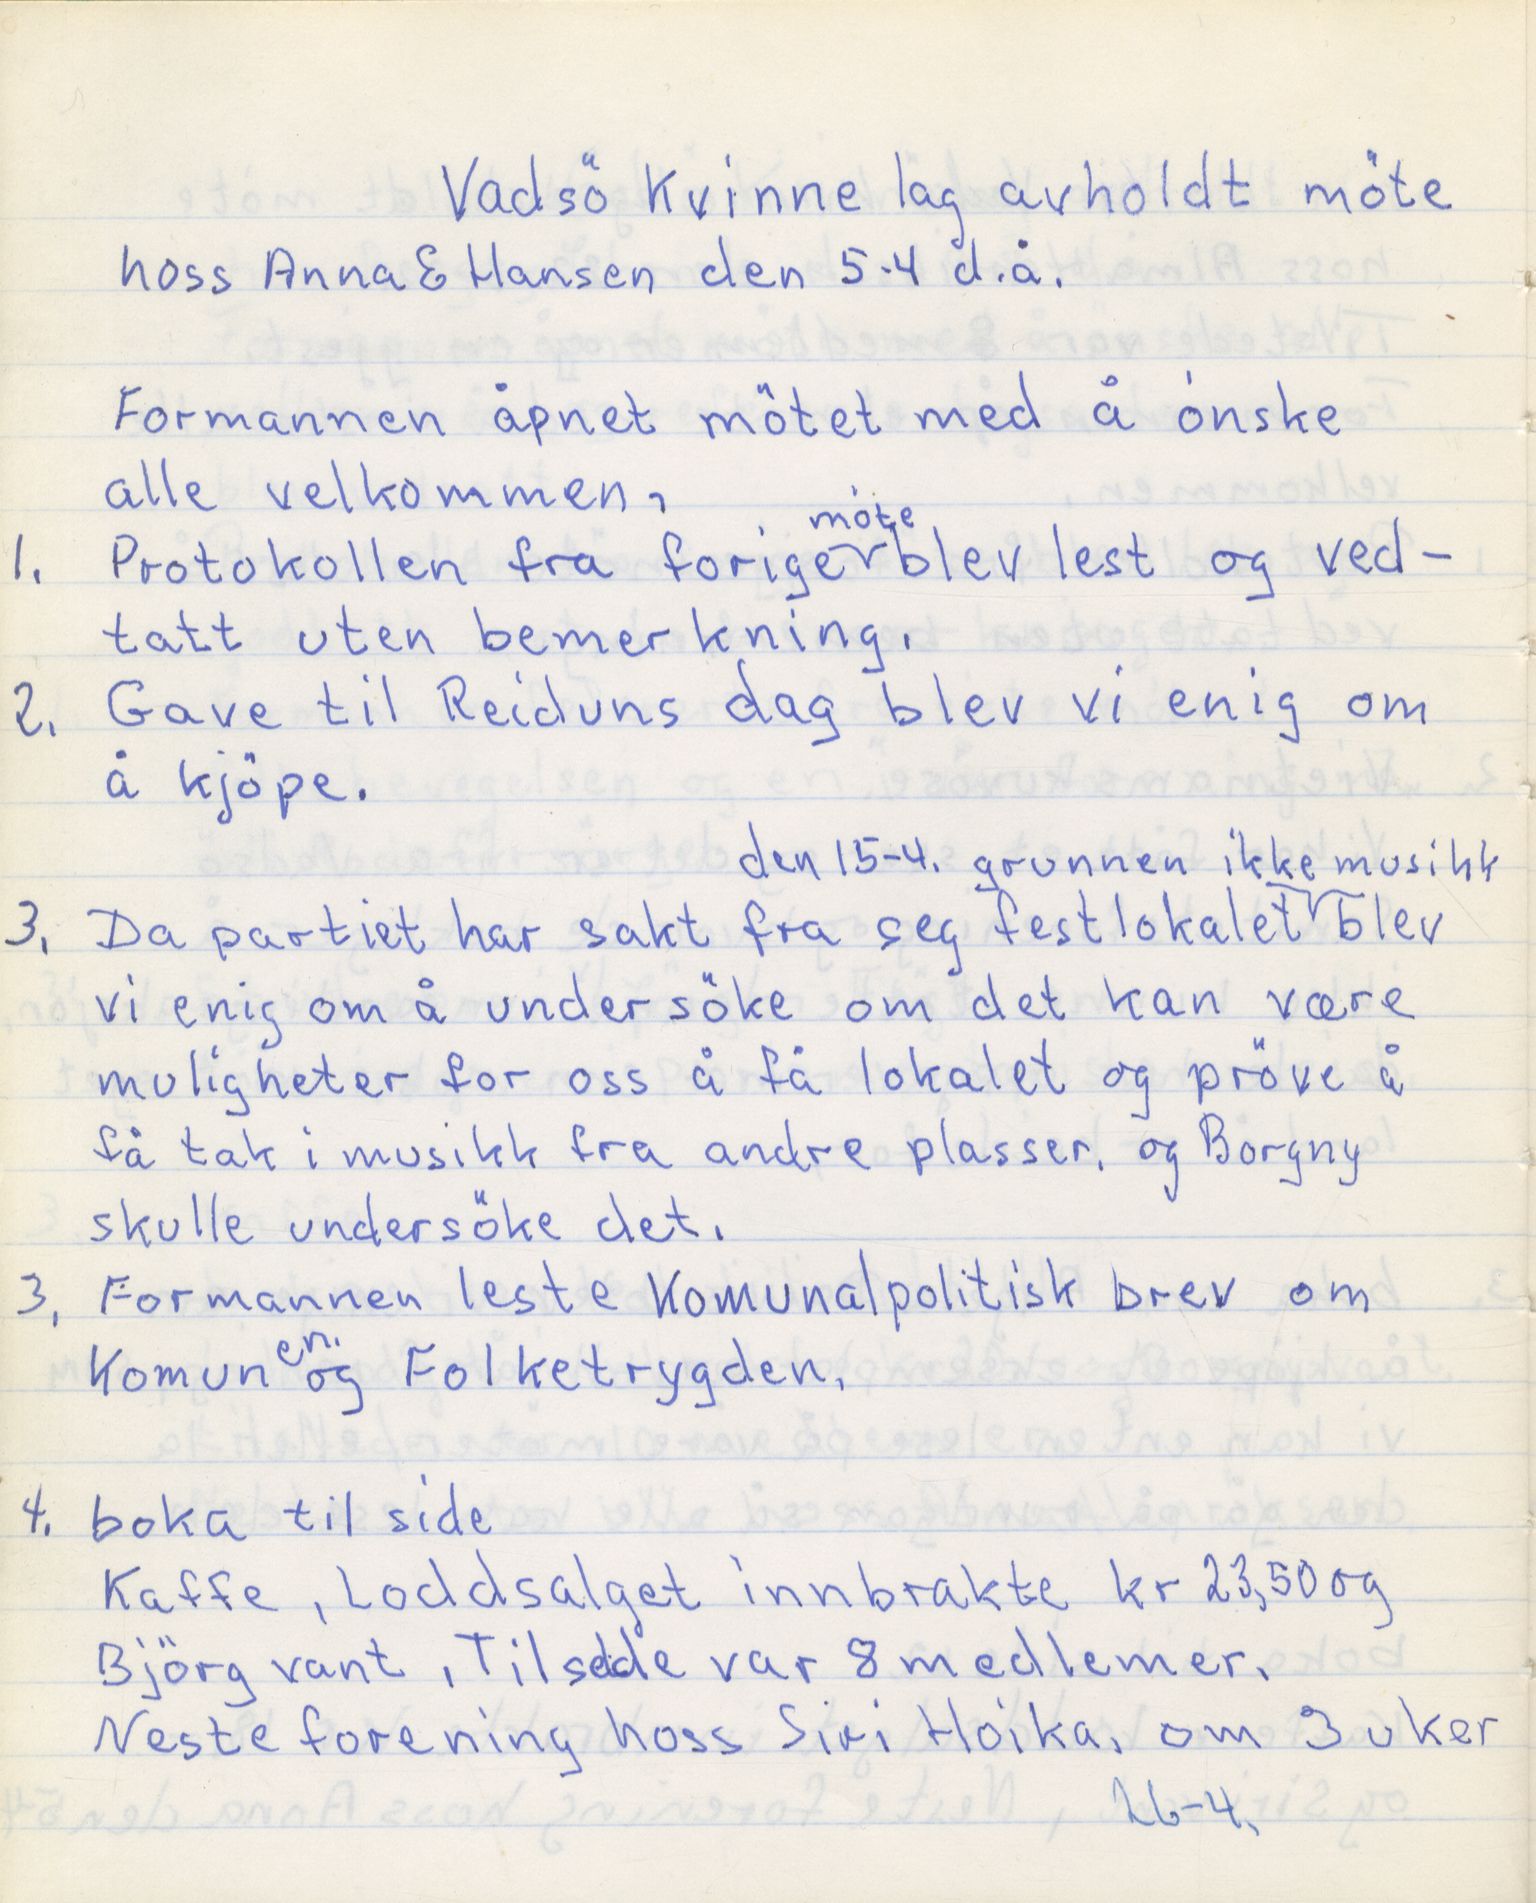 Vadsö Kvinnelag avholdt möte
hoss Anna E Hansen den 5.4 d.å.
Formannen åpnet mötet med å önske
alle velkommen,
1. Protokollen fra forige möte blev lest og ved-
tatt uten bemerkning.
2. Gave til Reiduns dag blev vi enig om
å kjöpe.
den 15-4. grunnen ikke musikk
3. Da partiet har sakt fra seg festlokalet blev
vi enig om å undersöke om det kan være
muligheter for oss å få lokalet og pröve å
få tak i musikk fra andre plasser. og Borgny
skulle undersöke det.
3. Formannen leste Komunalpolitisk brev om
Komunen. og Folketrygden.
4. boka til side
Kaffe, Loddsalget innbrakte kr 23,50 og
Björg vant, Tilsede var 8 medlemer.
Neste forening hoss Siri Hoika. om 3 uker
26-4.